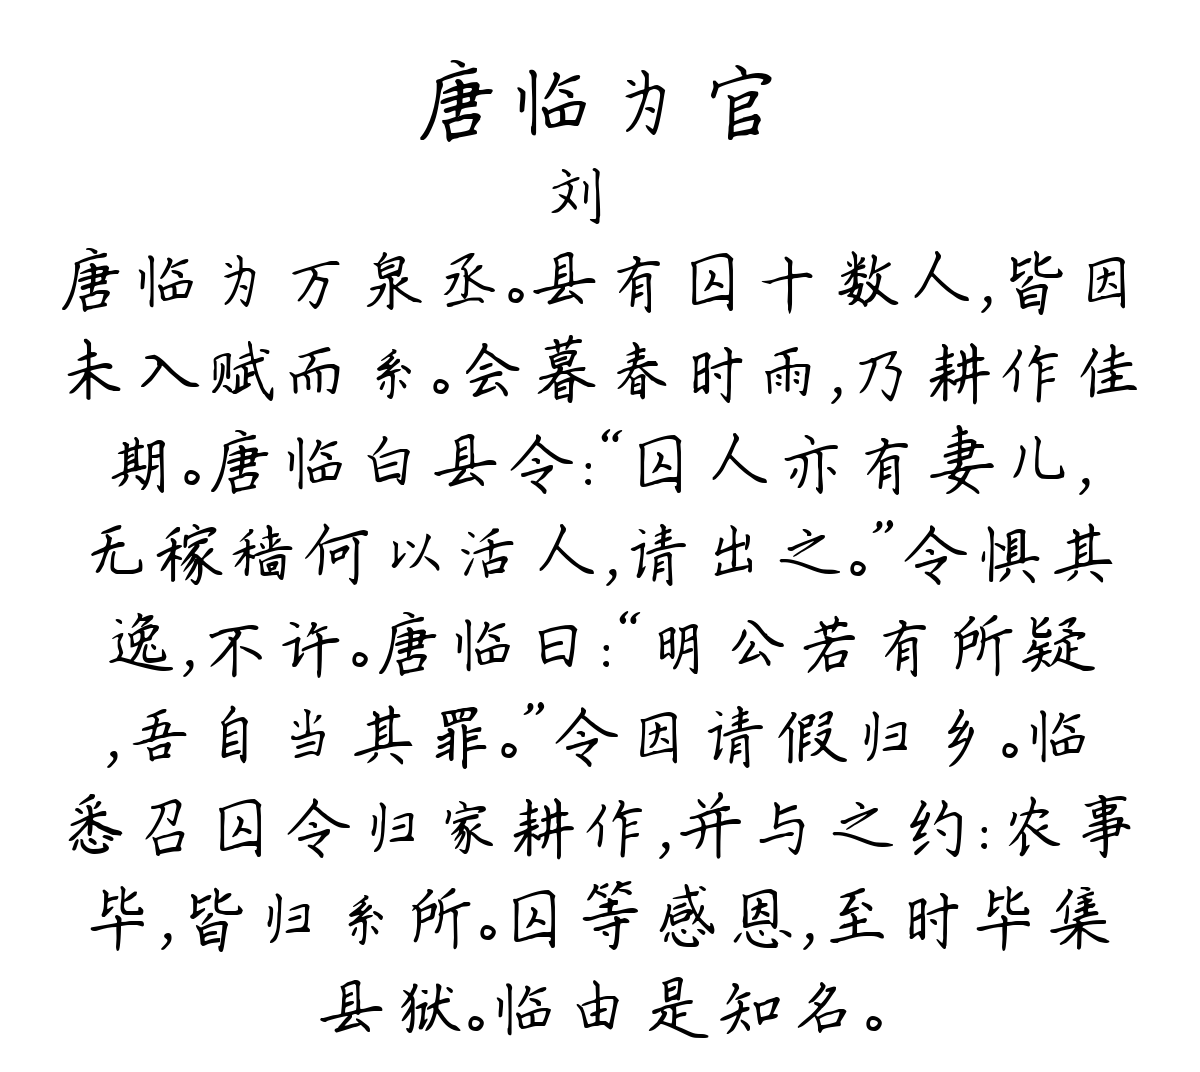 唐临为官
刘
唐临为万泉丞。县有囚十数人,皆因
未入赋而系。会暮春时雨,乃耕作佳
期。唐临白县令:“囚人亦有妻儿,
无稼穑何以活人,请出之。”令惧其
逸,不许。唐临曰:“明公若有所疑
,吾自当其罪。”令因请假归乡。临
悉召囚令归家耕作,并与之约:农事
毕,皆归系所。囚等感恩,至时毕集
县狱。临由是知名。